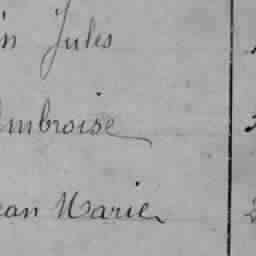 in Jules
Ambroise
ean Marie